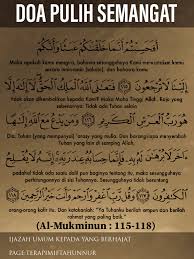 DOA PULIH SEMANGAT
أَفَحَسِبْتُمْ أَنَّمَا خَلَقْنَاكُمْ عَبَثًا وَأَنَّكُمْ
Maka apakah kamu mengira, bahawa sesungguhnya Kami menciptakan kamu
secara (main-main) (sahaja), dan bahawa kamu
إِلَيْنَا لَا تُرْجَعُونَ فَتَعَالَى اللَّهُ الْمَلِكُ الْحَقُّ لَا
tidak akan dikembalikan kepada Kami? Maka Maha Tinggi Allah, Raja yang
sebenarnya; Tidak ada Tuhan selain
إِلَٰهَ إِلَّا هُوَ رَبُّ الْعَرْشِ الْكَرِيمِ وَمَن يَدْعُ
Dia, Tuhan (yang mempunyai) 'arasy yang mulia. Dan barangsiapa menyembah
Tuhan yang lain di samping
مَعَ اللَّهِ إِلَٰهًا آخَرَ لَا بُرْهَانَ لَهُ بِهِ فَإِنَّمَا حِسَابُهُ عِندَ رَبِّهِ
padahal tidak ada suatu dalil pun baginya tentang itu, maka sesungguhnya
perhitungannya di sisi Tuhannya. Sesungguhnya tidak beruntung
إِنَّهُ لَا يُفْلِحُ الْكَافِرُونَ وَقُل رَّبِّ اغْفِرْ وَارْحَمْ وَأَنتَ خَيْرُ الرَّاحِمِينَ
orang-orang kafir itu. Dan katakanlah: "Ya Tuhanku berilah ampun dan berilah
rahmat yang paling baik."
(Al-Mukminun : 115-118)
IJAZAH UMUM KEPADA YANG BERHAJAT
PAGE:TERAPIMIFTAHUNNUR